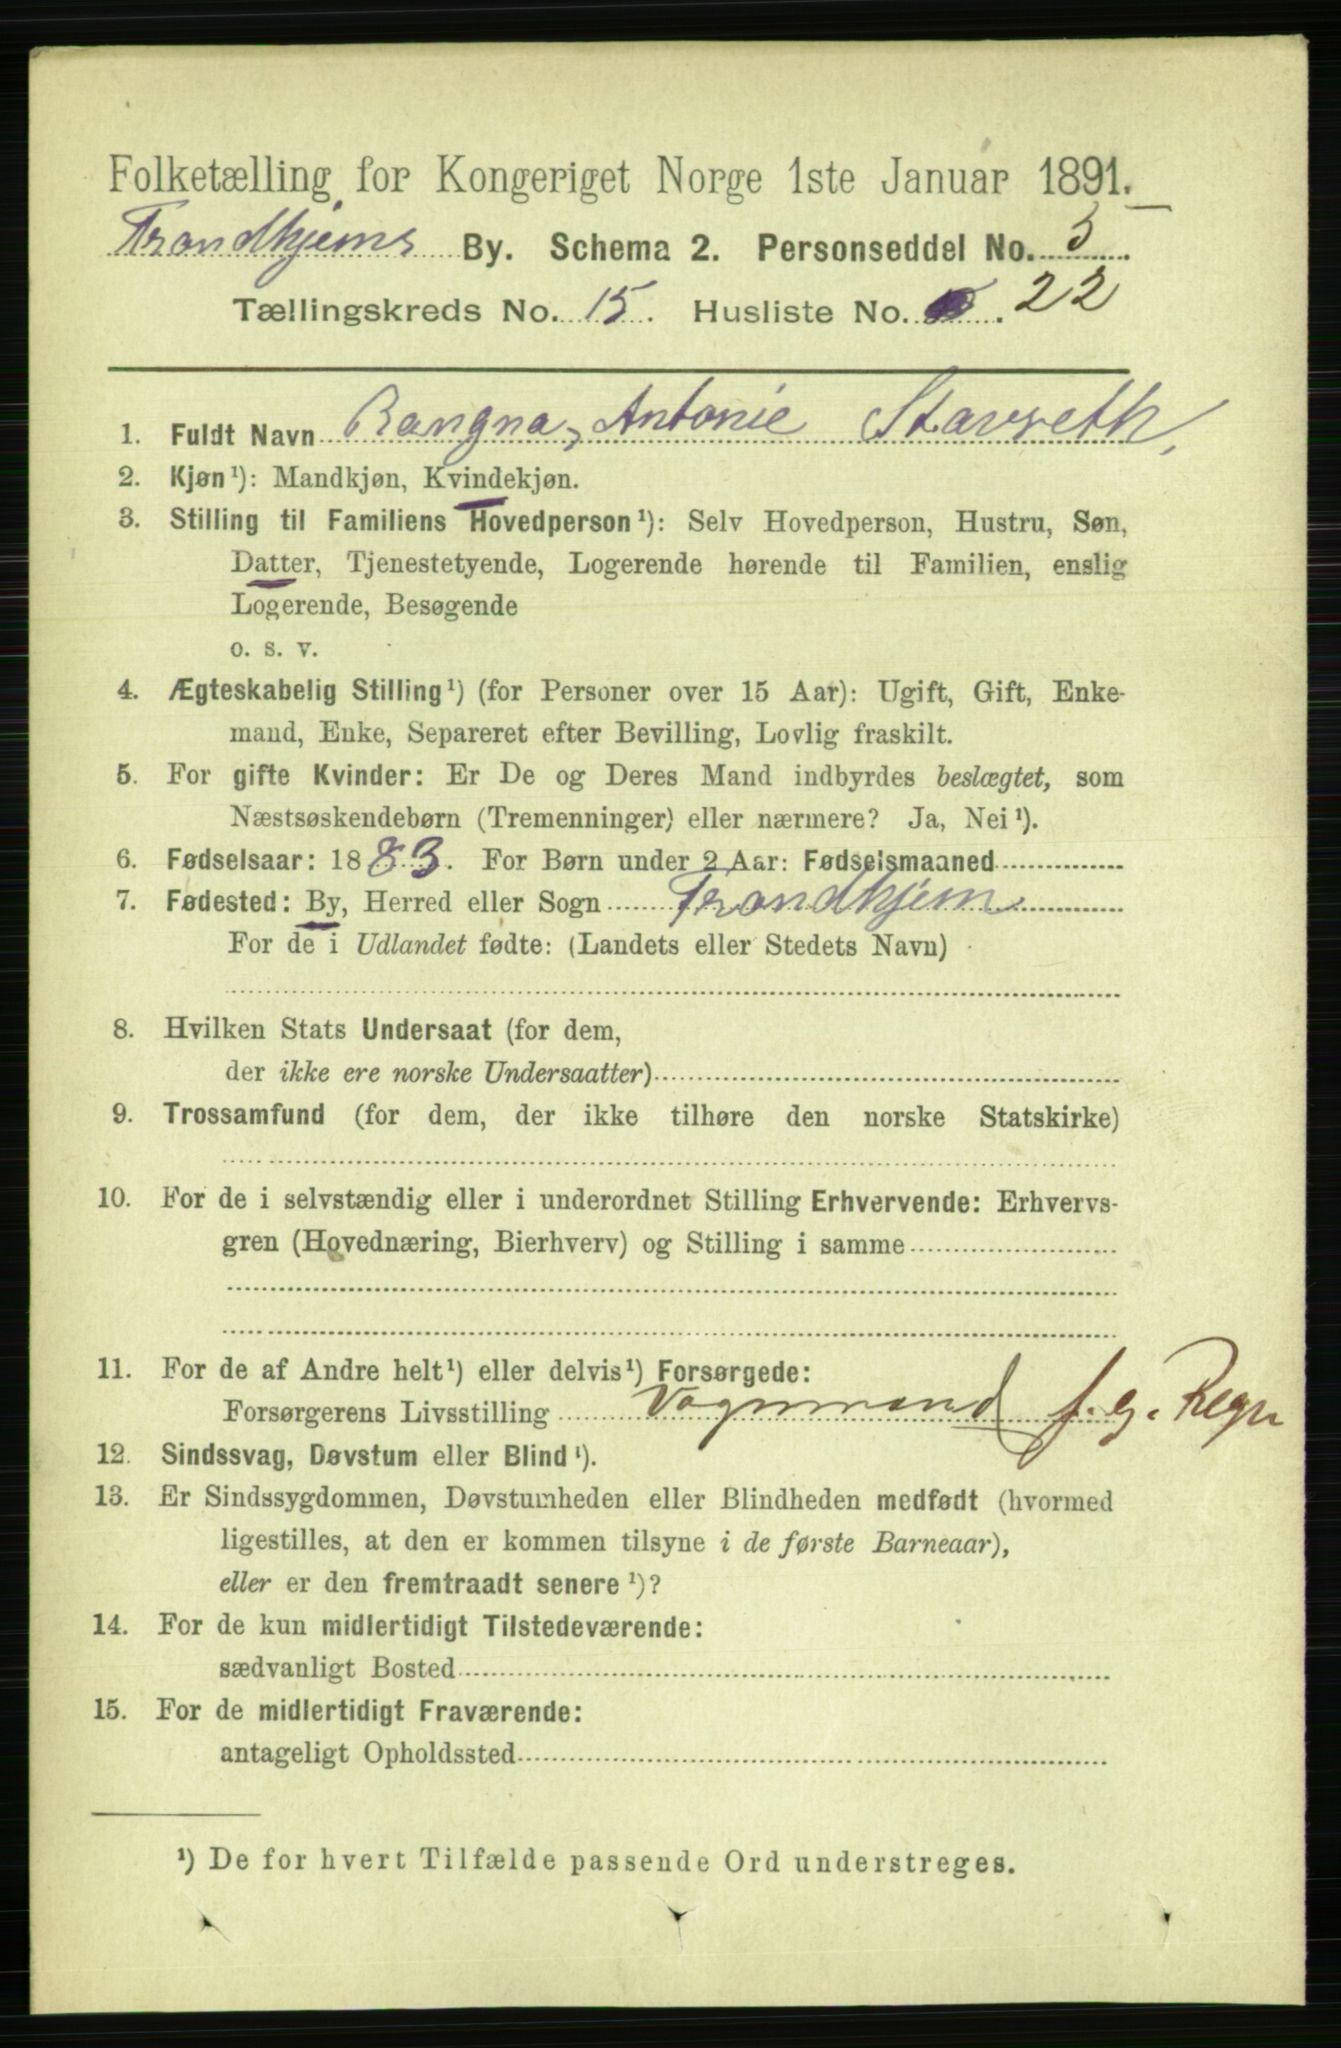 Folketælling for Kongeriget Norge 1ste Januar 1891.
Trondhjems By. Schema 2. Personseddel No. 5.
Tællingskreds No. 15. Husliste No. 22
1. Fuldt Navn Rangna, Antonie Stavseth,
2. Kjøn¹): Mandkjøn, Kvindekjøn.
3. Stilling til Familiens Hovedperson¹): Selv Hovedperson, Hustru, Søn,
Datter, Tjenestetyende, Logerende hørende til Familien, enslig
Logerende, Besøgende
o. s. v.
4. Ægteskabelig Stilling¹) (for Personer over 15 Aar): Ugift, Gift, Enke-
mand, Enke, Separeret efter Bevilling, Lovlig fraskilt.
5. For gifte Kvinder: Er De og Deres Mand indbyrdes beslægtet, som
Næstsøskendebørn (Tremenninger) eller nærmere? Ja, Nei¹).
6. Fødselsaar: 1883. For Børn under 2 Aar: Fødselsmaaned
7. Fødested: By, Herred eller Sogn Trondhjem
For de i Udlandet fødte: (Landets eller Stedets Navn)
8. Hvilken Stats Undersaat (for dem,
der ikke ere norske Undersaatter)
9. Trossamfund (for dem, der ikke tilhøre den norske Statskirke)
10. For de i selvstændig eller i underordnet Stilling Erhvervende: Erhvervs-
gren (Hovednæring, Bierhverv) og Stilling i samme
11. For de af Andre helt¹) eller delvis¹) Forsørgede:
Forsørgerens Livsstilling Vognmand f. g. Regn
12. Sindssvag, Døvstum eller Blind¹).
13. Er Sindssygdommen, Døvstumheden eller Blindheden medfødt (hvormed
ligestilles, at den er kommen tilsyne i de første Barneaar),
eller er den fremtraadt senere¹)?
14. For de kun midlertidigt Tilstedeværende:
sædvanligt Bosted
15. For de midlertidigt Fraværende:
antageligt Opholdssted
¹) De for hvert Tilfælde passende Ord understreges.